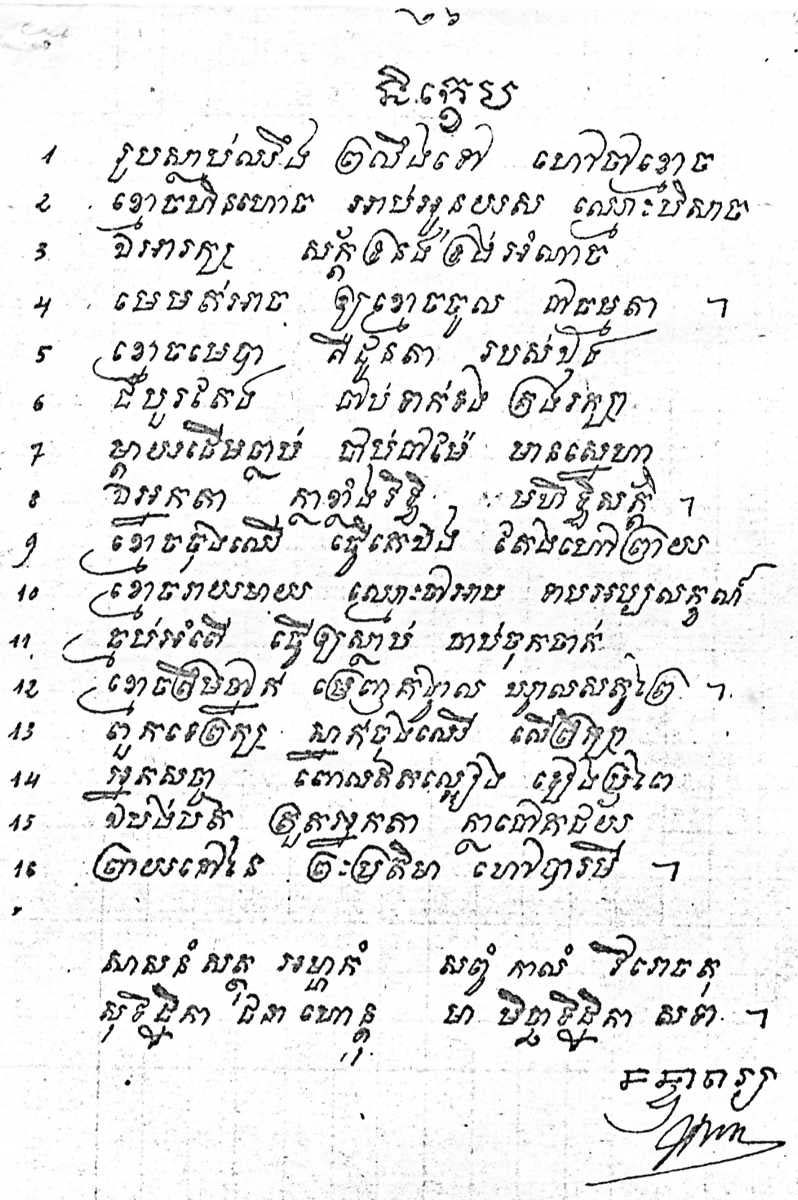 ២៦
និក្ខេប
1 រូបស្លាប់ឈឹង ព្រលឹងទៅ ហៅថាខ្មោច
2 ខ្មោចហិនហោច អាប់អួនយស ឈ្មោះបិសាច
3 ឯអារក្ស សក្ដិទ្រនង់ ទ្រង់អំណាច
4 មេមត់អាច ឲ្យខ្មោចចូល ជាធម្មតា ។
5 ខ្មោចមេបា គឺដូនតា របស់ឃុំង
6 ជំបួរតែង ជាប់ទាក់ទង ត្រងរក្សា
7 ម្ដាយដើមធ្លាប់ ជាប់ជាម៉ែ មានស្នេហា
8 ឯអ្នកតា ក្លាខ្លាំងរិទ្ធិ មហិទ្ធិសក្ដិ ។
9 ខ្មោចចុងឈើ ធ្វើគេឯង តែងហៅព្រាយ
10 ខ្មោចរាយមាយ ឈ្មោះជាអាប ទាបអប្បលក្ខណ៍
11 ធ្មប់អំពើ ធ្វើឲ្យស្លាប់ ចាប់ចុកចាក់
12 ខ្មោចព្រឹមធ្លាក់ ម្រេញគង្វាល ឃ្វាលសត្វព្រៃ ។
13 ពួកទេព្រក្ស ស្នាក់ចុងឈើ លើព្រឹក្សា
14 អ្នកសច្ចា ពោលឥតល្អៀង ខ្សៀងប្រុំពៃ
15 ឯបង់បត់ គ្រួគអ្នកតា ក្លាជោគជ័យ
16 ព្រាយនៅនៃ ព្រះប្រតិមា ហៅបារមី ។
សាសនំ សត្ថុ អម្ហាកំ សព្វំ កាលំ វិរោចតុ
សុទិដ្ឋិកា ជនា ហោន្តុ មា មិច្ឆាទិដ្ឋិកា សទា ។